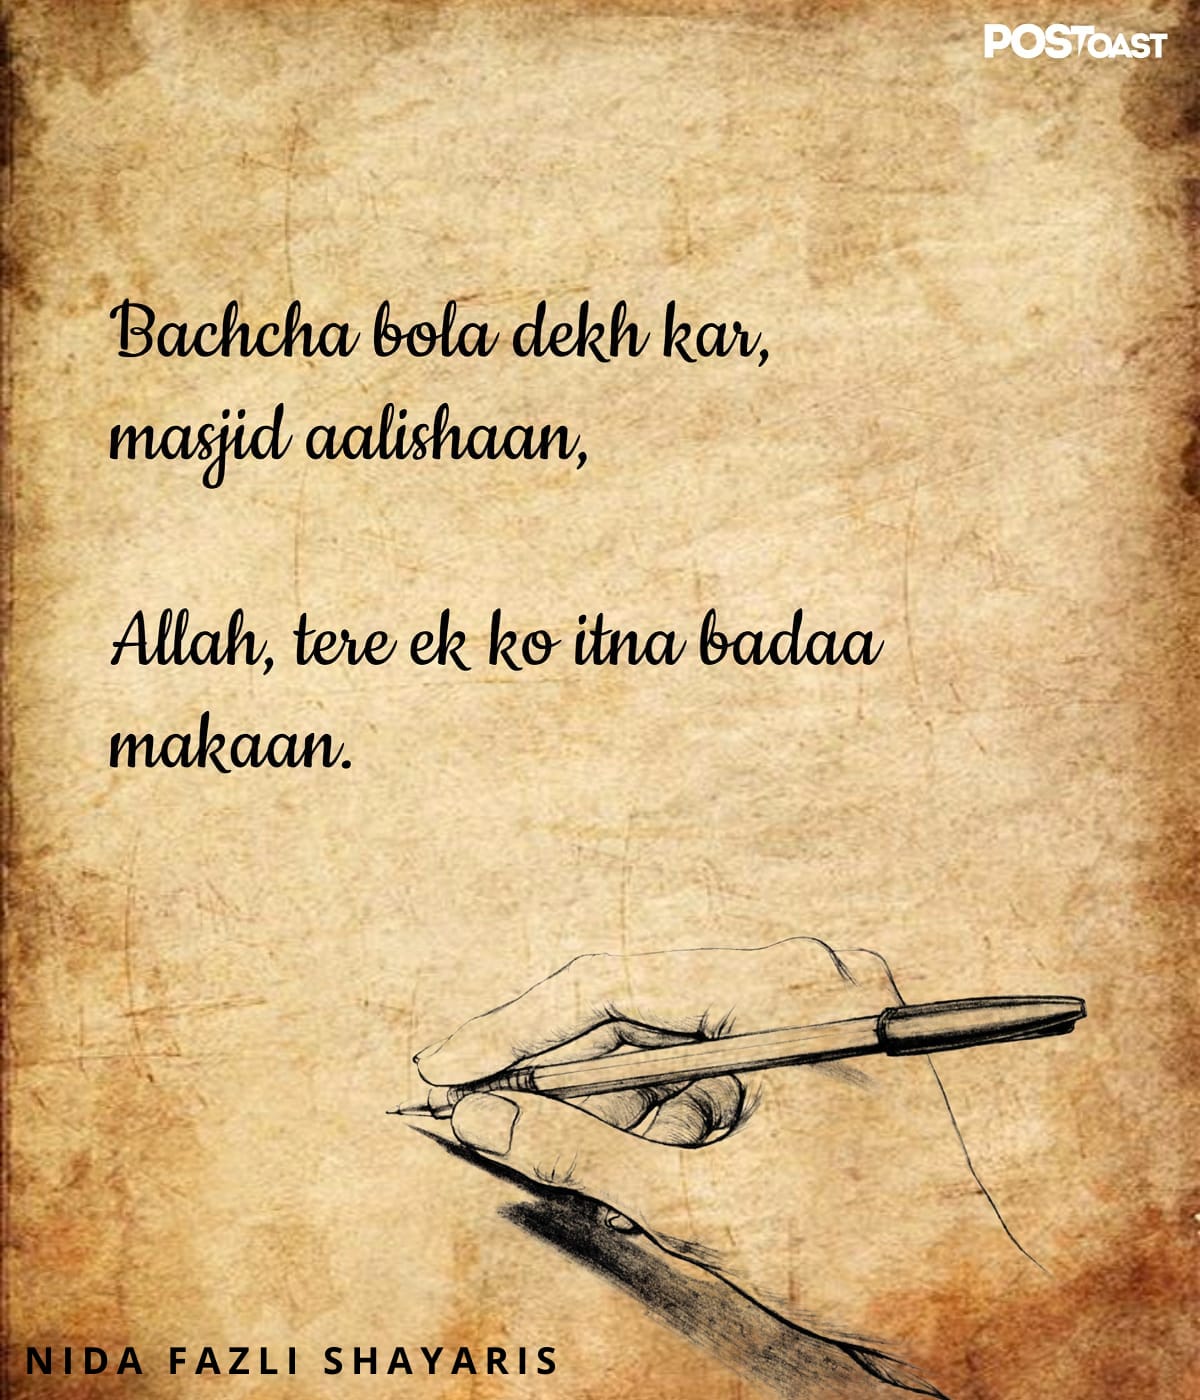 POSTOAST
Bachcha bola dekh kar,
masjid aalishaan,
Allah, tere ek ko itna badaa
makaan.
NIDA FAZLI SHAYARIS